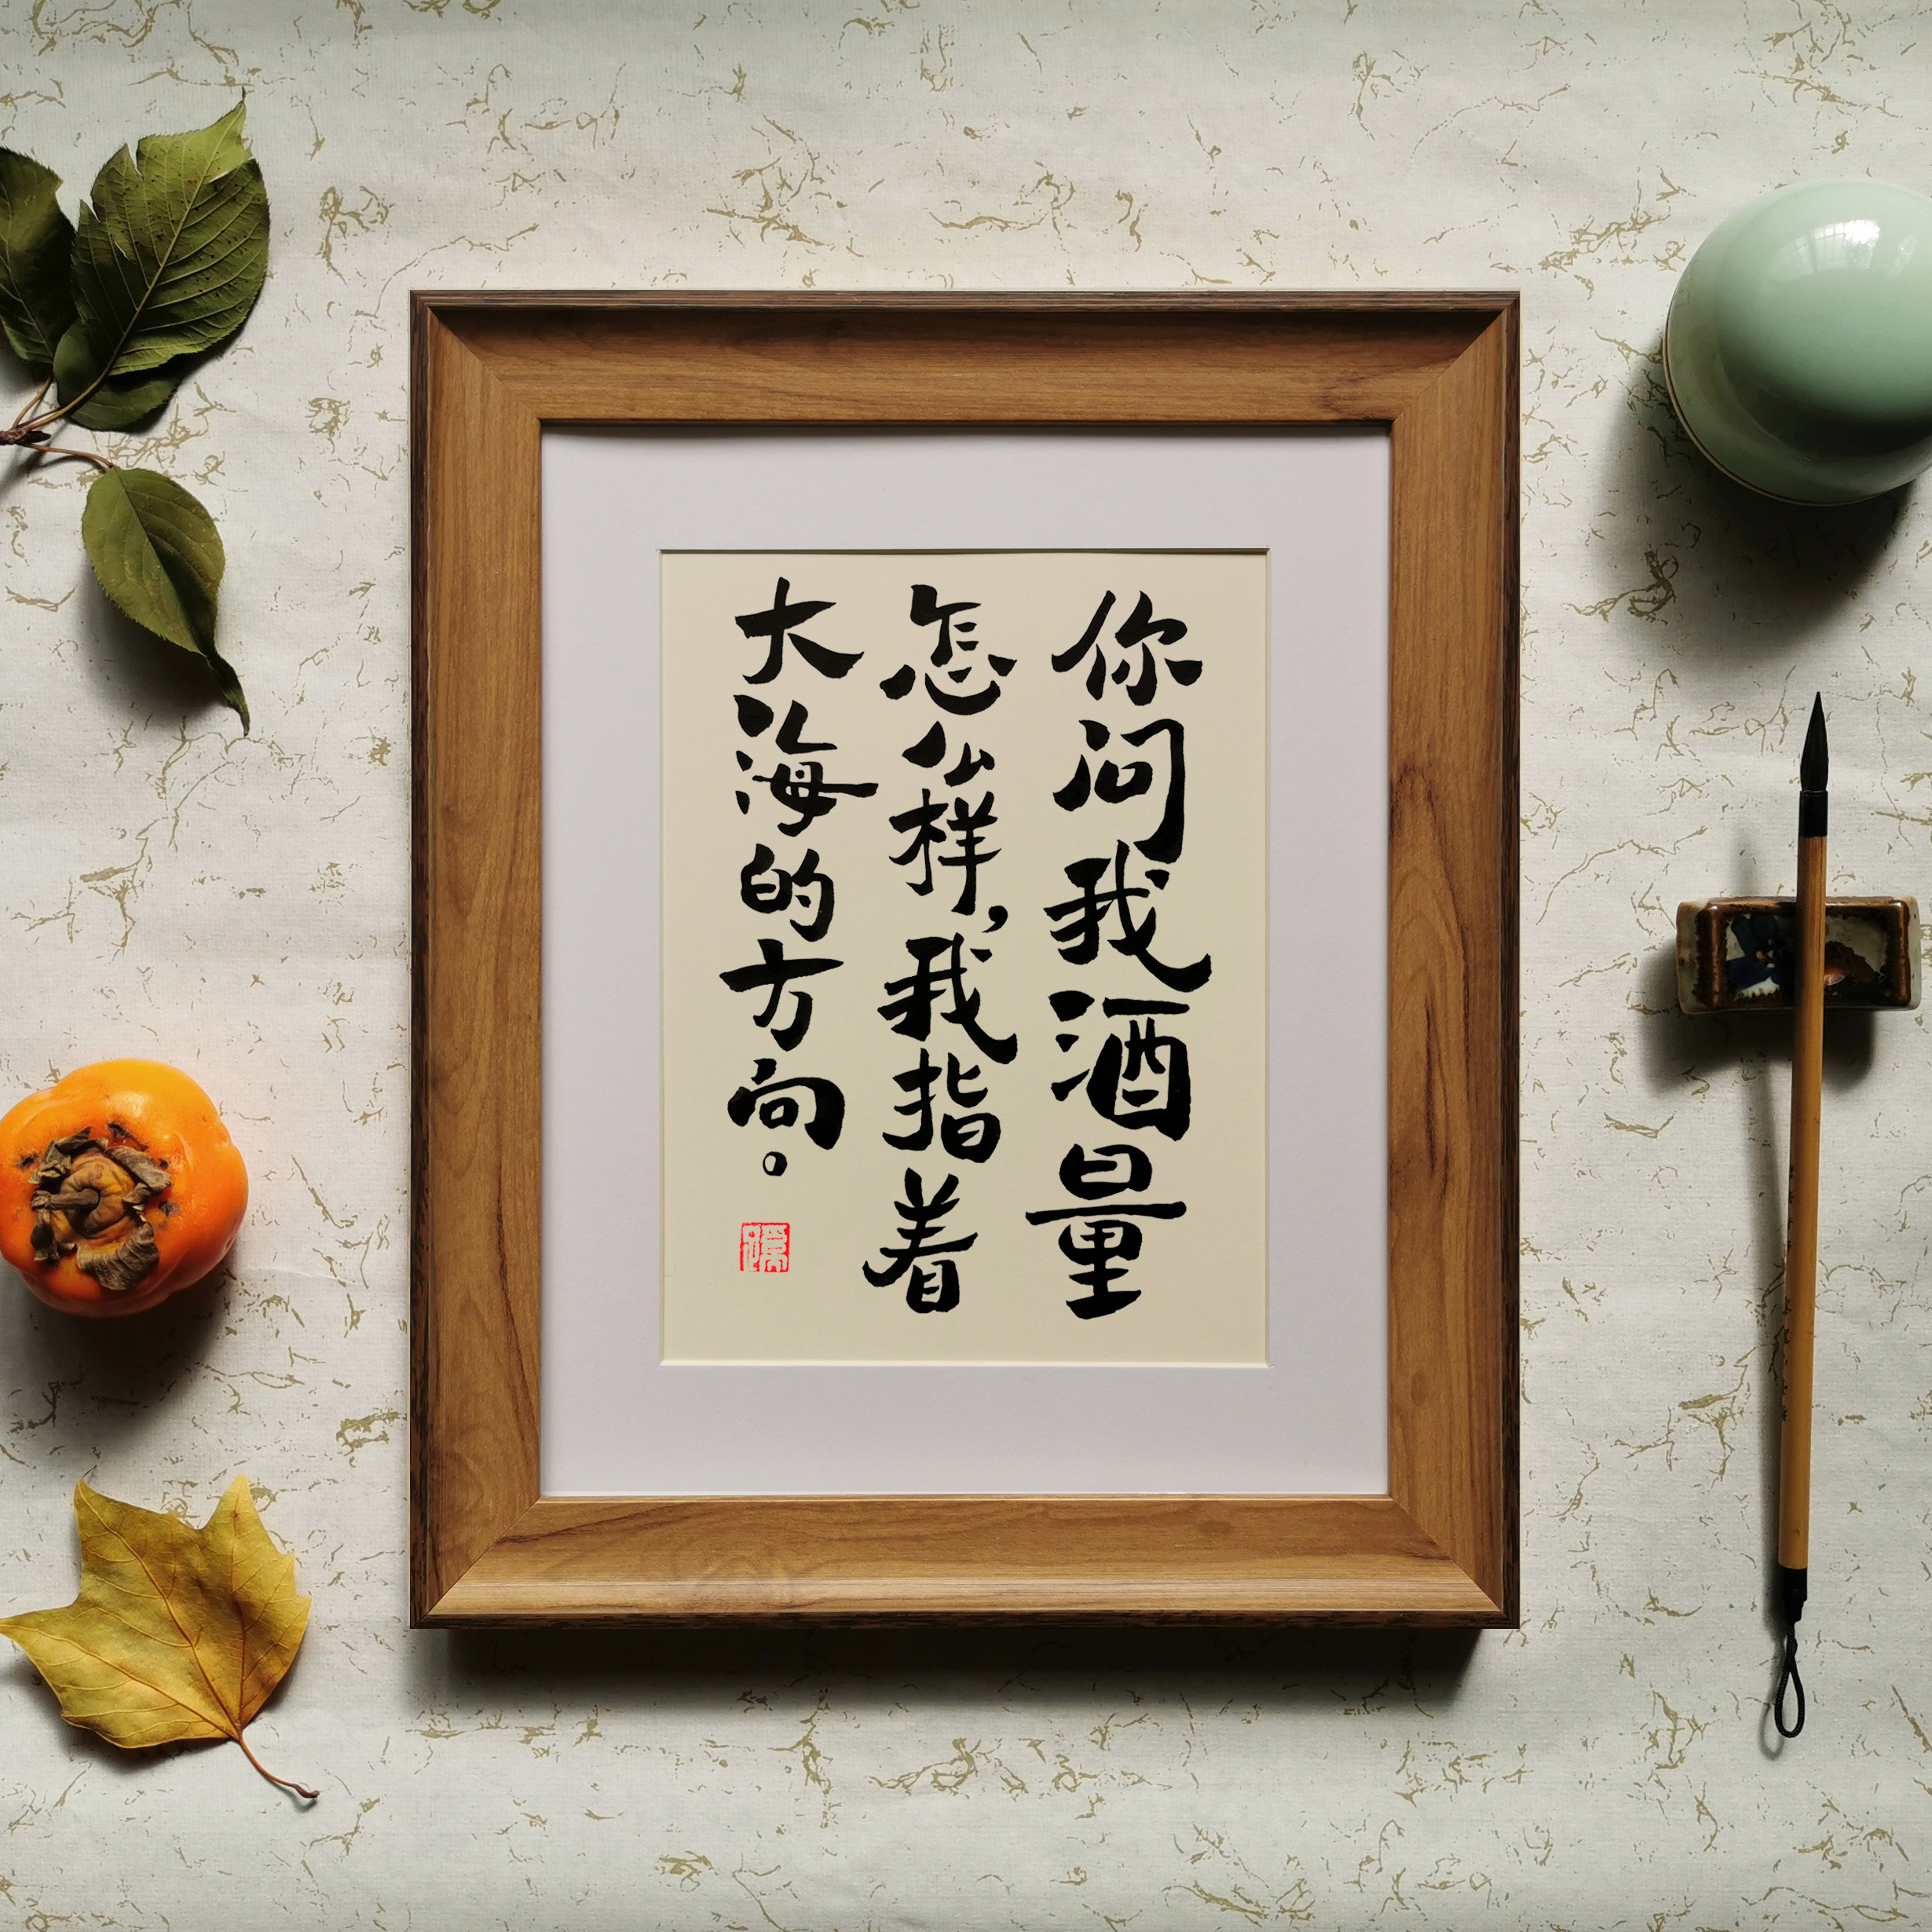 你问我酒量
怎么样，我指着
大海的方向。